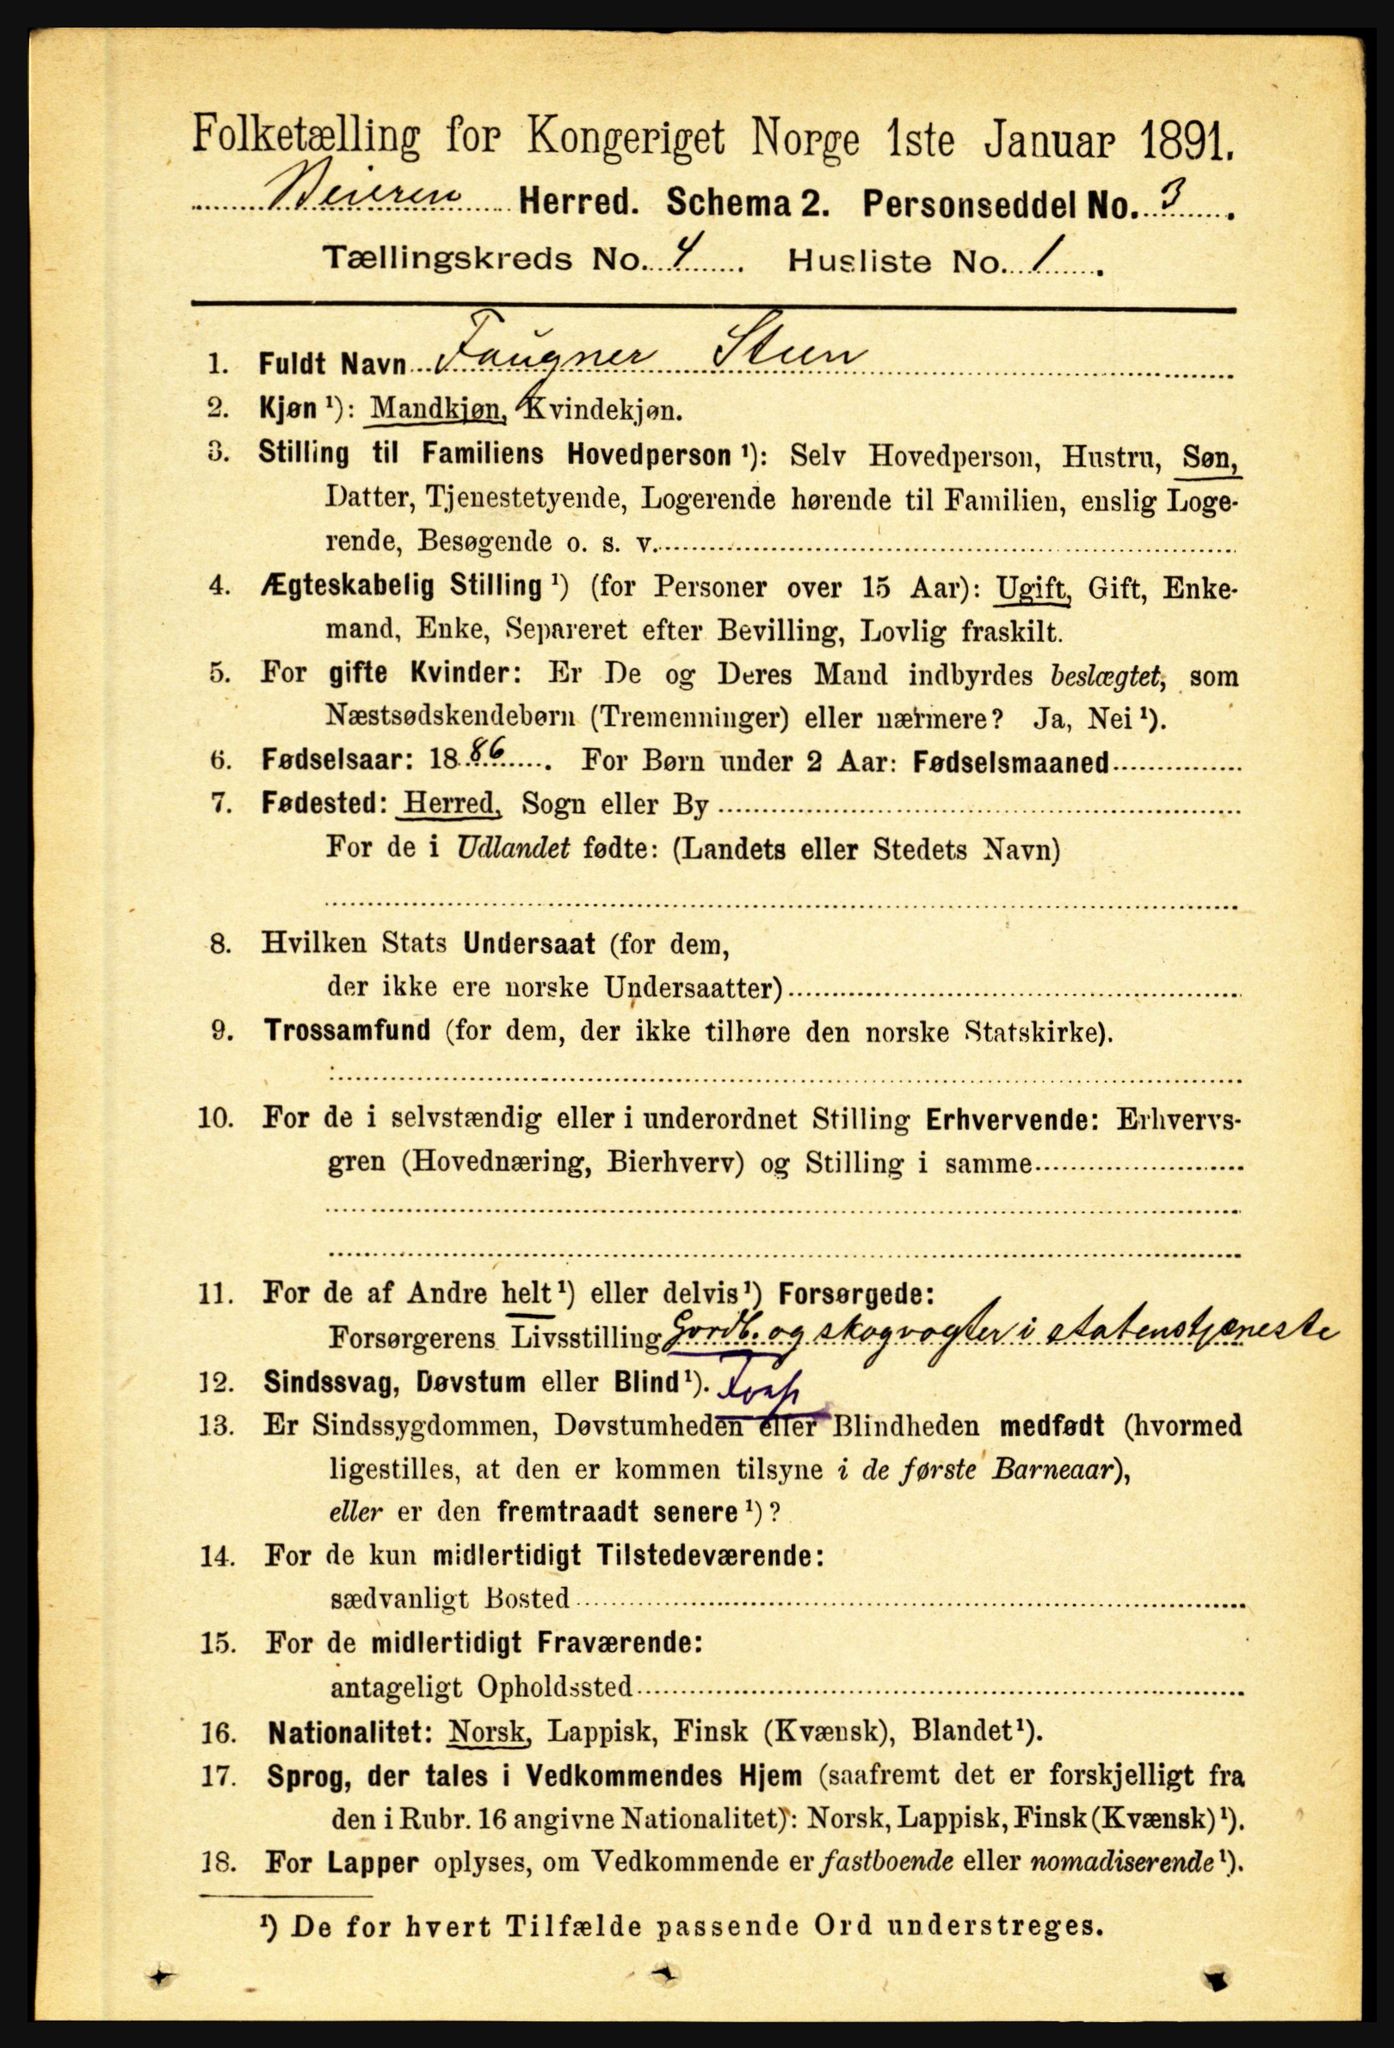 Folketælling for Kongeriget Norge 1ste Januar 1891.
Beieren Herred. Schema 2. Personseddel No. 3.
Tællingskreds No. 4. Husliste No. 1.
1. Fuldt Navn Faugner Steen
2. Kjøn ¹): Mandkjøn, Kvindekjøn.
3. Stilling til Familiens Hovedperson ¹): Selv Hovedperson, Hustru, Søn,
Datter, Tjenestetyende, Logerende hørende til Familien, enslig Loge-
rende, Besøgende o. s. v.
4. Ægteskabelig Stilling ¹) (for Personer over 15 Aar): Ugift, Gift, Enke-
mand, Enke, Separeret efter Bevilling, Lovlig fraskilt.
5. For gifte Kvinder: Er De og Deres Mand indbyrdes beslægtet, som
Næstsødskendebørn (Tremenninger) eller nærmere? Ja, Nei ¹).
6. Fødselsaar: 1886. For Børn under 2 Aar: Fødselsmaaned
7. Fødested: Herred, Sogn eller By
For de i Udlandet fødte: (Landets eller Stedets Navn)
8. Hvilken Stats Undersaat (for dem,
der ikke ere norske Undersaatter)
9. Trossamfund (for dem, der ikke tilhøre den norske Statskirke).
10. For de i selvstændig eller i underordnet Stilling Erhvervende: Erhvervs-
gren (Hovednæring, Bierhverv) og Stilling i samme
11. For de af Andre helt ¹) eller delvis ¹) Forsørgede:
Forsørgerens Livsstilling Gordb. og skogvogter i statenstjeneste
12. Sindssvag, Døvstum eller Blind ¹).
13. Er Sindssygdommen, Døvstumheden eller Blindheden medfødt (hvormed
ligestilles, at den er kommen tilsyne i de første Barneaar),
eller er den fremtraadt senere ¹)?
14. For de kun midlertidigt Tilstedeværende:
sædvanligt Bosted
15. For de midlertidigt Fraværende:
antageligt Opholdssted
16. Nationalitet: Norsk, Lappisk, Finsk (Kvænsk), Blandet ¹).
17. Sprog, der tales i Vedkommendes Hjem (saafremt det er forskjelligt fra
den i Rubr. 16 angivne Nationalitet): Norsk, Lappisk, Finsk (Kvænsk) ¹).
18. For Lapper oplyses, om Vedkommende er fastboende eller nomadiserende ¹).
¹) De for hvert Tilfælde passende Ord understreges.